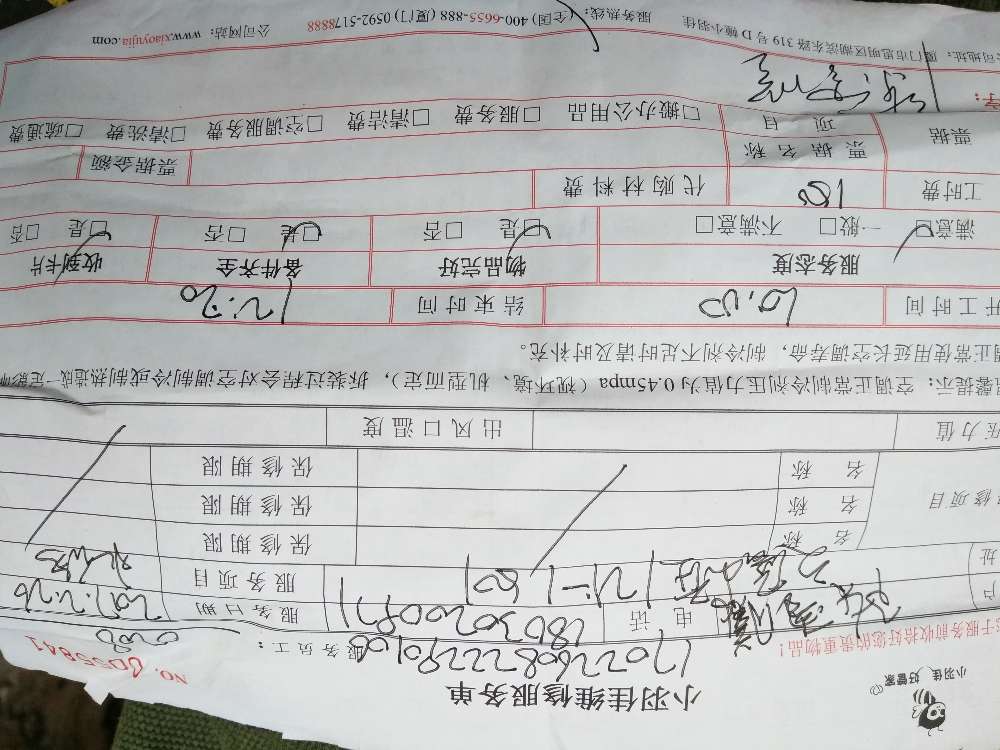 小羽佳 好管家
小羽佳维修服务单
NO. 0035841
于服务前收拾好您的贵重物品！
服务员工：
户
电话
服务日期
址
服务项目
修项目
名称
保修期限
名称
保修期限
名称
保修期限
压力值
出风口温度
温馨提示：空调正常制冷剂压力值为0.45mpa（视环境、机型而定），拆装过程会对空调制冷或制热造成一定影响
调正常使用延长空调寿命，制冷剂不足时请及时补充。
开工时间
10:00
结束时间
12:20
服务态度
物品完好
备件齐全
收到卡片
满意□ 一般□ 不满意□
□是 □否
□是 □否
□是 □否
工时费
180
代购材料费
票据
票据名称
票据金额
项目
□搬办公用品 □服务费 □清洁费 □空调服务费 □清洗费 □疏通费
字：
公司地址：厦门市思明区湖滨东路319号D幢小羽佳 服务热线：(全国)400-6655-888 (厦门)0592-5178888 公司网站：www.xiaoyujia.com